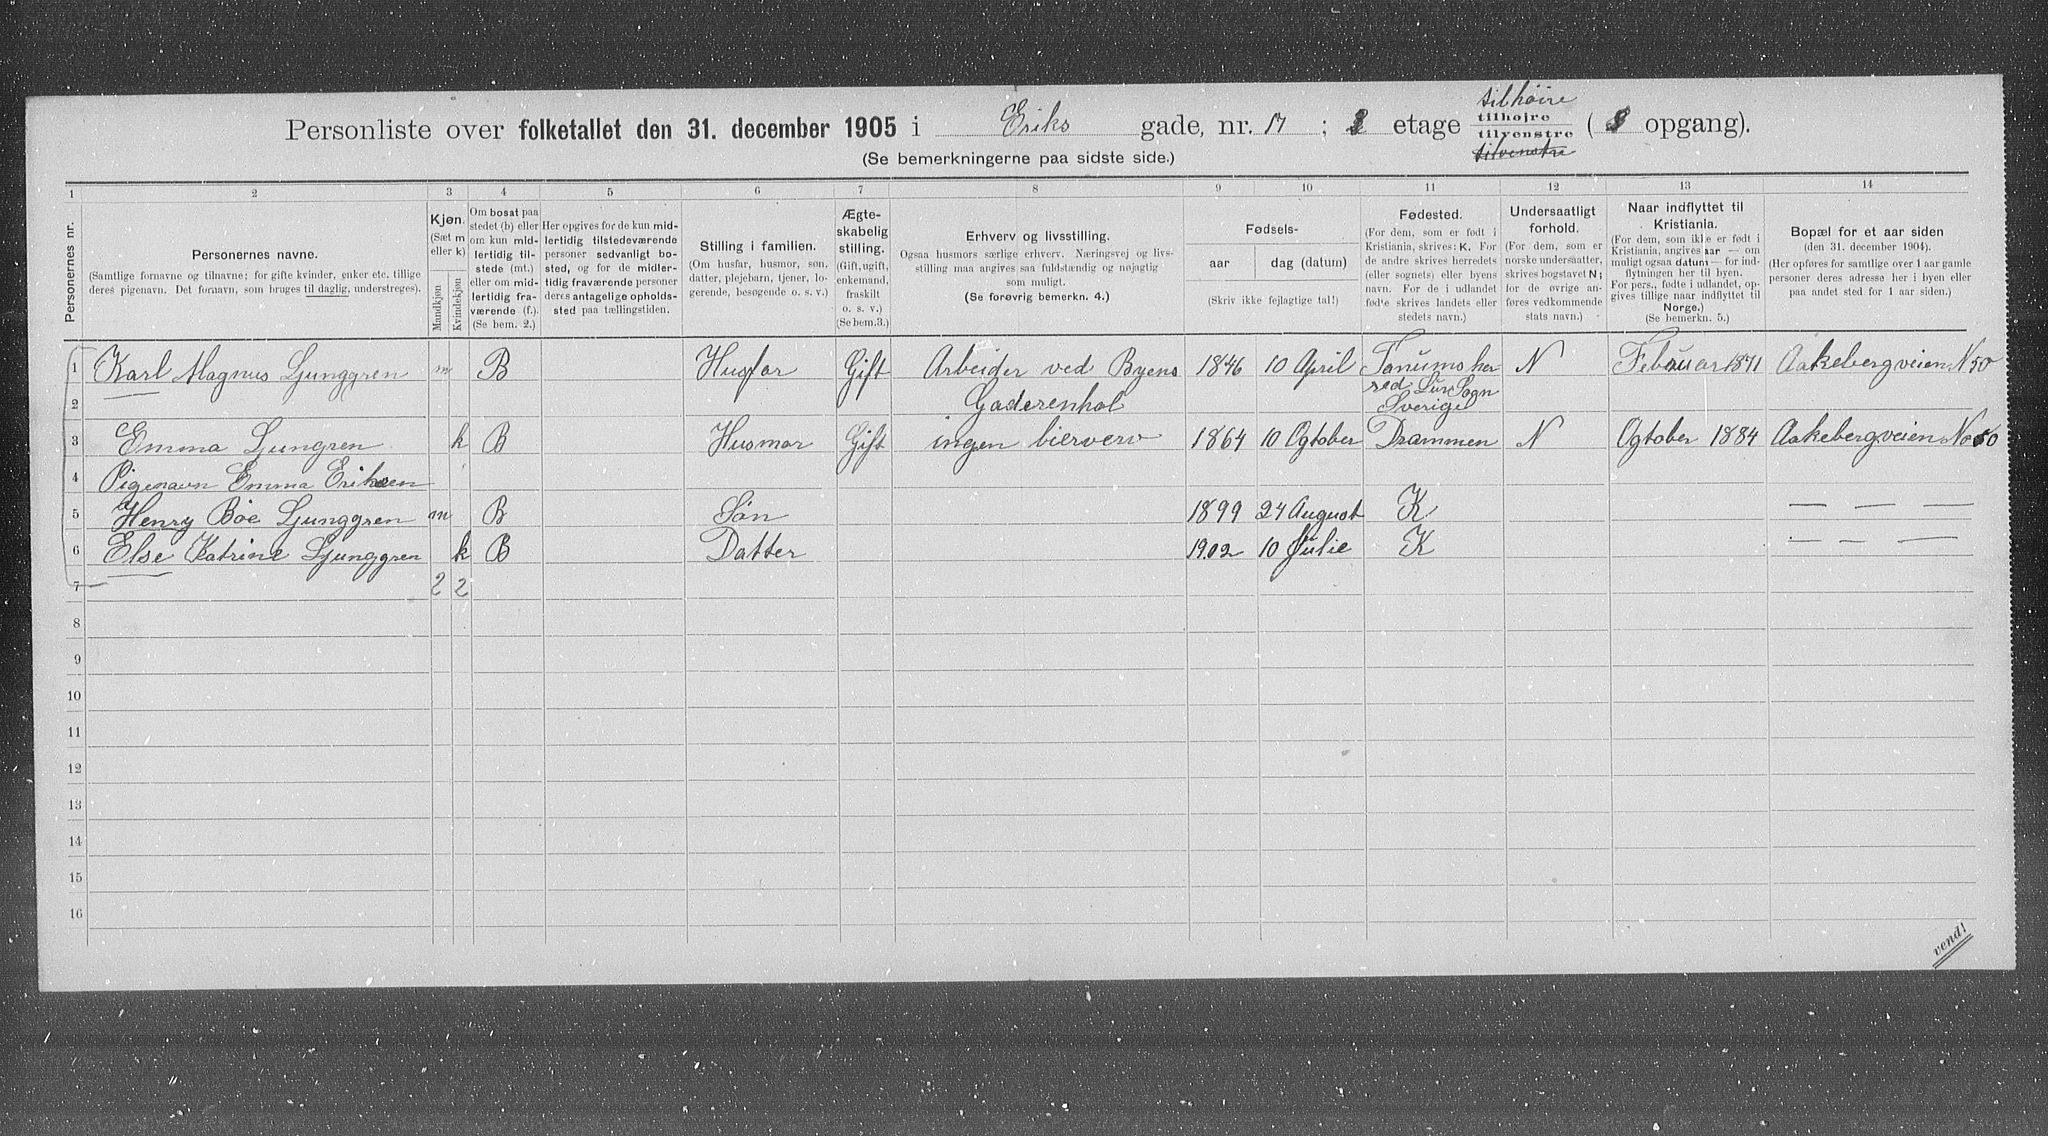 tilhöire
Personliste over folketallet den 31. december 1905 i Eriks gade, nr. 17 ; etage tilhøjre ( opgang).
tilvenstre
tilvenstre
(Se bemerkningerne paa sidste side.)
1 2 3 4 5 6 7 8 9 10 11 12 13 14
Personernes nr.
Personernes navne.
(Samtlige fornavne og tilnavne; for gifte kvinder, enker etc. tillige
deres pigenavn. Det fornavn, som bruges til daglig, understreges).
Kjøn.
(Sæt m
eller k)
Mandkjøn
Kvindekjøn
Om bosat paa
stedet (b) eller
om kun mid-
lertidig til-
stede (mt.)
eller om mid-
lertidig fra-
værende (f.).
(Se bem. 2.)
Her opgives for de kun mid-
lertidig tilstedeværende
personer sedvanlig bo-
sted, og for de midler-
tidig fraværende personer
deres antagelige opholds-
sted paa tællingstiden.
Stilling i familien.
(Om husfar, husmor, søn,
datter, plejebarn, tjener, lo-
gerende, besøgende o. s. v.)
Ægte-
skabelig
stilling.
(Gift, ugift,
enkemand,
fraskilt
o. s. v.)
(Se bem.3.)
Erhverv og livsstilling.
Ogsaa husmors særlige erhverv. Næringsvej og livs-
stilling maa angives saa fuldstændig og nøjagtig
som muligt.
(Se forøvrig bemerkn. 4.)
Fødsels-
aar dag (datum)
(Skriv ikke fejlagtige tal!)
Fødested.
(For dem, som er født i
Kristiania, skrives: K. For
de andre skrives herredets
(eller sognets) eller byens
navn. For de i udlandet
fødte skrives landets eller
stedets navn.)
Undersaatligt
forhold.
(For dem, som er
norske undersaatter,
skrives bogstavet N;
for de øvrige an-
føres vedkommende
stats navn.)
Naar indflyttet til
Kristiania.
(For dem, som ikke er født i
Kristiania, angives aar — om
muligt ogsaa datum — for ind-
flytningen her til byen.
For pers., fødte i udlandet, op-
gives tillige naar indflyttet til
Norge.)
(Se bemerkn. 5.)
Bopæl for et aar siden
(den 31. december 1904).
(Her opføres for samtlige over 1 aar gamle
personer deres adresse her i byen eller
paa andet sted for 1 aar siden.)
1 Karl Magnus Ljunggren m B Husfar Gift Arbeider ved Byens 1846 10 April Tanums her N Februar 1871 Aakebergveien N 50
2 Gaderenhol red Lur Sogn
Sverige
3 Emma Ljungren k B Husmor Gift ingen bierverv 1864 10 Ogtober Drammen N Ogtober 1884 Aakebergveien No 50
4 Pigenavn Emma Eriksen
5 Henry Böe Ljunggren m B Sön 1899 24 August K — — —
6 Else Katrine Ljunggren k B Datter 1902 10 Julie K — — —
7 2 2
8
9
10
11
12
13
14
15
16
vend!